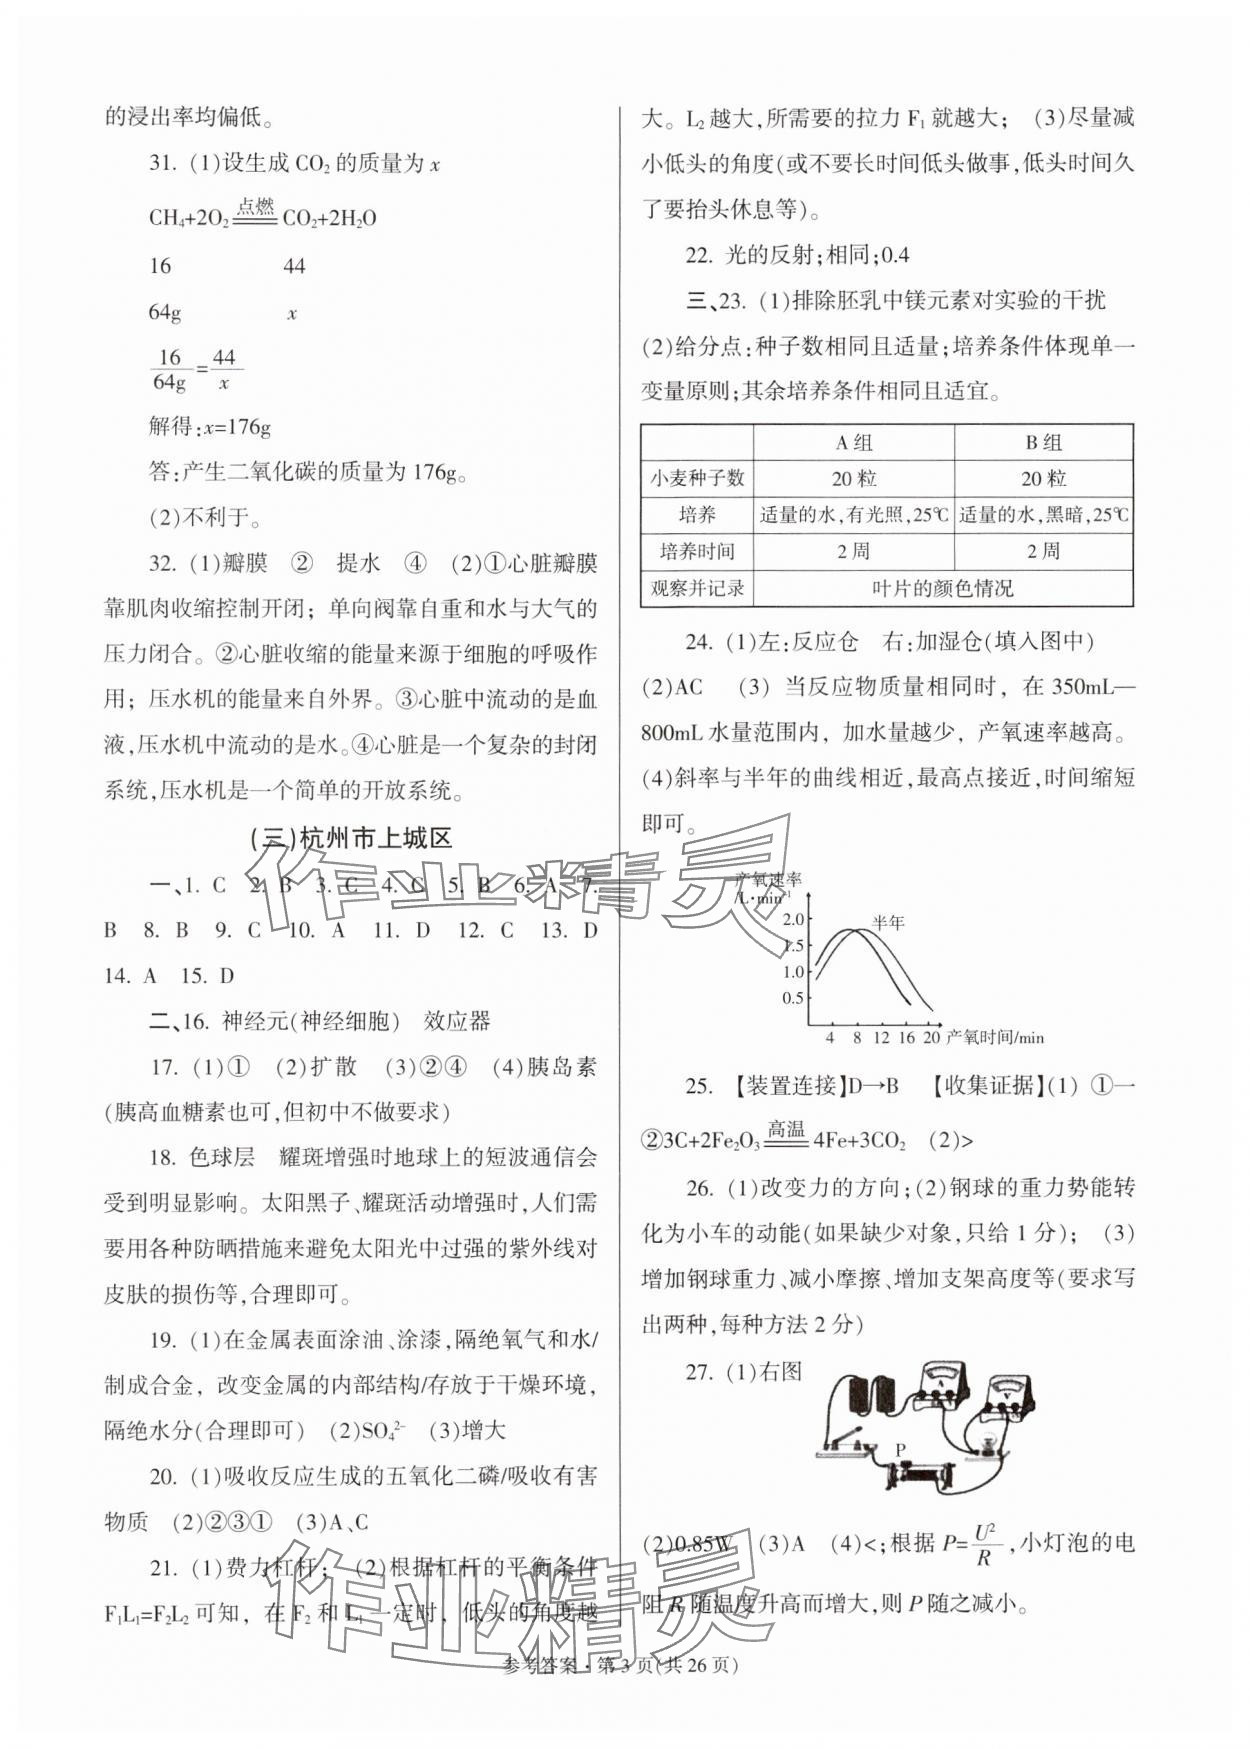 的浸出率均偏低。
31. (1)设生成 CO₂ 的质量为 x
CH₄+2O₂ 点燃 CO₂+2H₂O
16 44
64g x
16/64g=44/x
解得:x=176g
答:产生二氧化碳的质量为 176g。
(2)不利于。
32. (1)瓣膜 ② 提水 ④ (2)①心脏瓣膜
靠肌肉收缩控制开闭；单向阀靠自重和水与大气的
压力闭合。②心脏收缩的能量来源于细胞的呼吸作
用；压水机的能量来自外界。③心脏中流动的是血
液,压水机中流动的是水。④心脏是一个复杂的封闭
系统,压水机是一个简单的开放系统。
(三)杭州市上城区
一、1. C 2. B 3. C 4. C 5. B 6. A 7.
B 8. B 9. C 10. A 11. D 12. C 13. D
14. A 15. D
二、16. 神经元(神经细胞) 效应器
17. (1)① (2)扩散 (3)②④ (4)胰岛素
(胰高血糖素也可,但初中不做要求)
18. 色球层 耀斑增强时地球上的短波通信会
受到明显影响。太阳黑子、耀斑活动增强时,人们需
要用各种防晒措施来避免太阳光中过强的紫外线对
皮肤的损伤等,合理即可。
19. (1)在金属表面涂油、涂漆,隔绝氧气和水/
制成合金，改变金属的内部结构/存放于干燥环境,
隔绝水分(合理即可) (2)SO₄²⁻ (3)增大
20. (1)吸收反应生成的五氧化二磷/吸收有害
物质 (2)②③① (3)A、C
21. (1)费力杠杆； (2)根据杠杆的平衡条件
F₁L₁=F₂L₂ 可知，在 F₂ 和 L₁ 一定时，低头的角度越
大。L₂ 越大,所需要的拉力 F₁ 就越大； (3)尽量减
小低头的角度(或不要长时间低头做事,低头时间久
了要抬头休息等)。
22. 光的反射;相同;0.4
三、23. (1)排除胚乳中镁元素对实验的干扰
(2)给分点:种子数相同且适量;培养条件体现单一
变量原则;其余培养条件相同且适宜。
A 组 B 组
小麦种子数 20 粒 20 粒
培养 适量的水,有光照,25℃ 适量的水,黑暗,25℃
培养时间 2 周 2 周
观察并记录 叶片的颜色情况
24. (1)左:反应仓 右:加湿仓(填入图中)
(2)AC (3) 当反应物质量相同时，在 350mL—
800mL 水量范围内，加水量越少，产氧速率越高。
(4)斜率与半年的曲线相近,最高点接近,时间缩短
即可。
产氧速率
/L·min⁻¹
2.0 半年
1.5
1.0
0.5
4 8 12 16 20 产氧时间/min
25. 【装置连接】D→B 【收集证据】(1) ①一
②3C+2Fe₂O₃ 高温 4Fe+3CO₂ (2)>
26. (1)改变力的方向;(2)钢球的重力势能转
化为小车的动能(如果缺少对象,只给 1 分)； (3)
增加钢球重力、减小摩擦、增加支架高度等(要求写
出两种,每种方法 2 分)
27. (1)右图
A
V
P
(2)0.85W (3)A (4)<;根据 P=U²/R,小灯泡的电
阻 R 随温度升高而增大,则 P 随之减小。
参考答案·第 3 页(共 26 页)
作业精灵
作业精灵